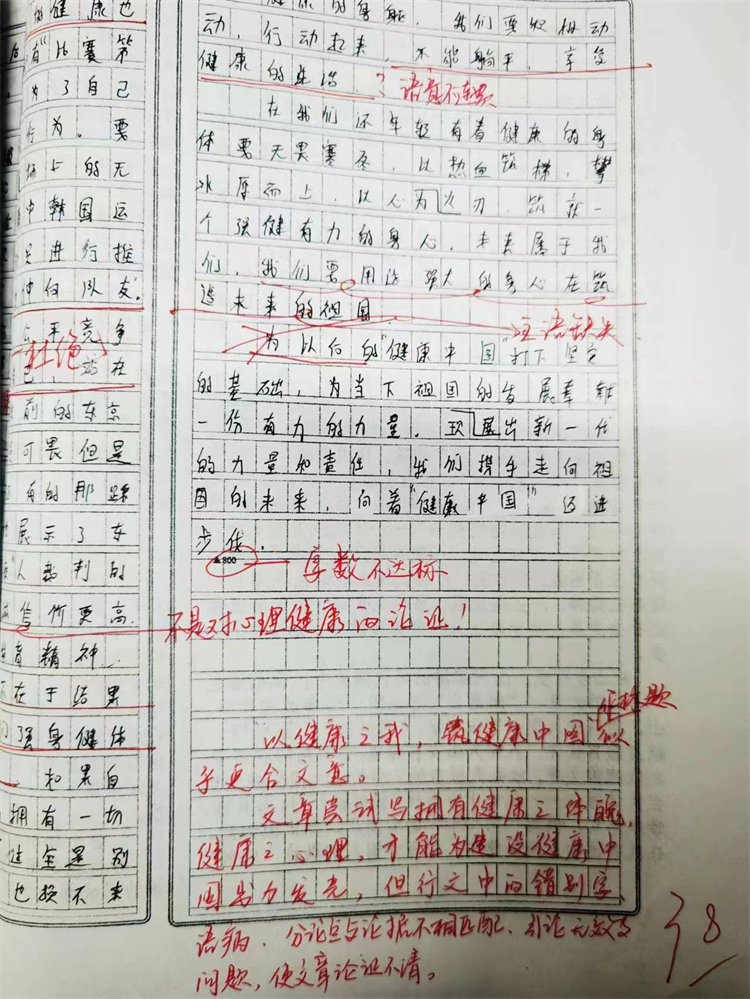 的健康也
有"比赛第
为了自己
行为。要
场上的无
中韩国运
是进行推
仲向队友.
公平竞争
杜绝
已，站在
前的东京
可畏但是
有的那
展示了东
"人裁判的
竹更高.
育精神.
不在于结果
强身健体
和果自
拥有一切
健全是别
也换不来
健康的身躯，我们要积极
动，行动起来，不能躺平，享受
健康的生活.
？语意不连贯
在我们还年轻有着健康的身
体要无畏寒冬，以热血筑梯，攀
冰厚而上，以心为火刃，筑就一
个强健有力的身心，未来属于我
们，我们要用这强大的身心在筑
造未来的祖国
主语缺失
为以后的"健康中国"打下坚定
的基础，为当下祖国的发展奉献
一份有力的力量，展出新一代
的力量和责任，我们携手走向祖
国的未来，向着"健康中国"迈进
步伐.
▲800
字数不达标
不是对心理健康的论证！
作标题
以健康之我，筑健康中国似
乎更合文意。
文章尝试写拥有健康之体魄，
健康之心理，才能为建设健康中
国努力发光，但行文中的错别字、
语病、分论点与论据不相匹配、引论无效等
问题，使文章论证不清。
38